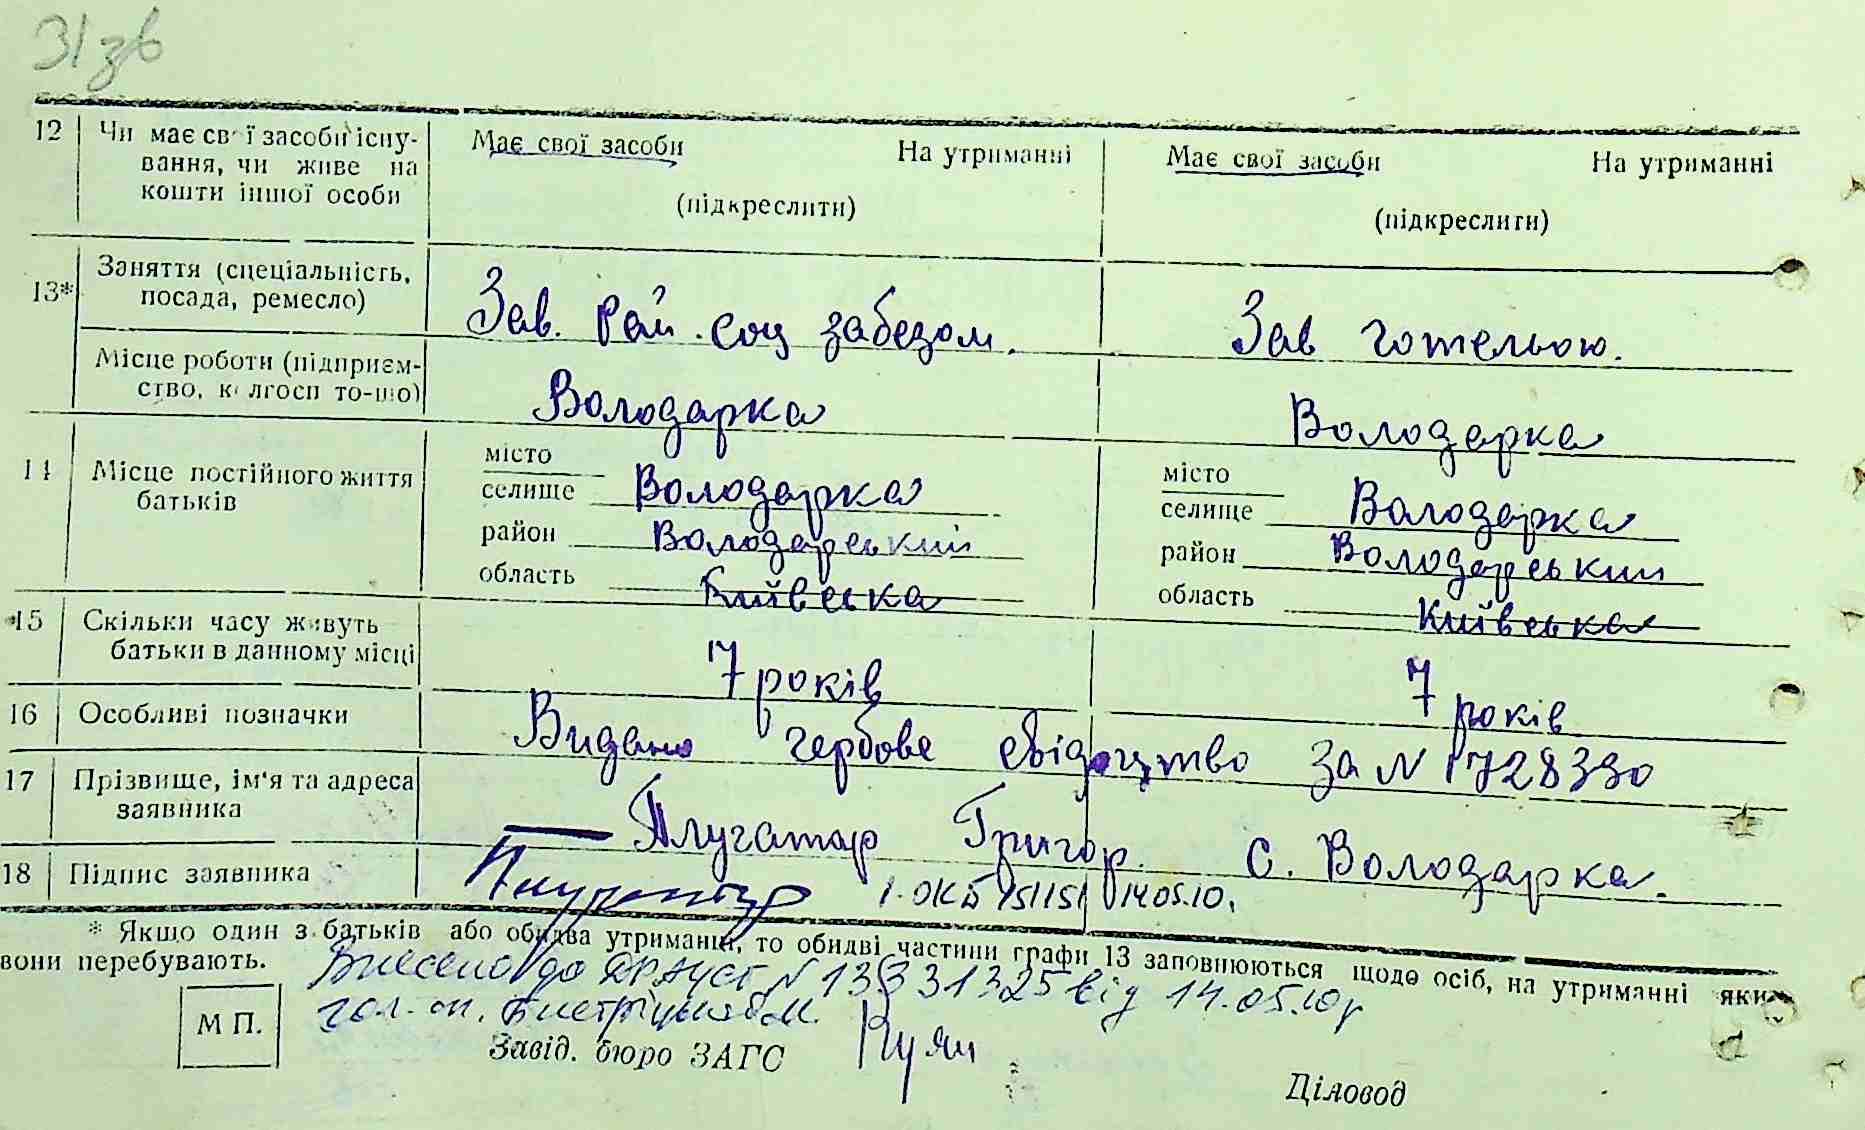 31 зв
12 Чи має свої засоби існу- Має свої засоби На утриманні Має свої засоби На утриманні
вання, чи живе на
кошти іншої особи (підкреслити) (підкреслити)
13* Заняття (спеціальність,
посада, ремесло) Зав. Рай. соц забезом. Зав готельою.
Місце роботи (підприєм-
ство, колгосп то-що) Володарка Володарка
14 Місце постійного життя
батьків
місто місто
селище Володарка селище Володарка
район Володарський район Володарський
область Київська область Київська
15 Скільки часу живуть
батьки в данному місці 7 років 7 років
16 Особливі позначки Видано гербове свідоцтво за N 1728330
17 Прізвище, ім'я та адреса
заявника Плугатар Григор. с. Володарка.
18 Підпис заявника Плугатар 14.05.10.
* Якщо один з батьків або обидва утриманці, то обидві частини графи 13 заповнюються щодо осіб, на утриманні яких
вони перебувають.
Внесено до ДРАЦСГ N 13331325 від 14.05.10р
гол. сп.
М П.
Завід. бюро ЗАГС
Діловод